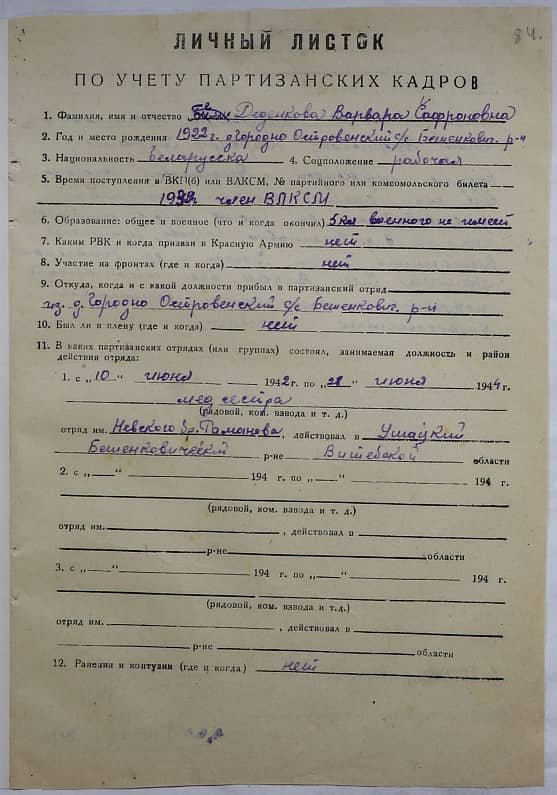 84.
ЛИЧНЫЙ ЛИСТОК
ПО УЧЕТУ ПАРТИЗАНСКИХ КАДРОВ
1. Фамилия, имя и отчество Деденкова Варвара Сафроновна
2. Год и место рождения 1922 г. д Городно Островенский с/с Бешенкович. р-н
3. Национальность беларусска 4. Соцположение рабочая
5. Время поступления в ВКП(б) или ВЛКСМ, № партийного или комсомольского билета
член ВЛКСМ
6. Образование: общее и военное (что и когда окончил) 5 кл военного не имеет
7. Каким РВК и когда призван в Красную Армию нет
8. Участие на фронтах (где и когда) нет
9. Откуда, когда и с какой должности прибыл в партизанский отряд
из д. Городно Островенский с/с Бешенкович. р-н
10. Был ли в плену (где и когда) нет
11. В каких партизанских отрядах (или группах) состоял, занимаемая должность и район
действия отряда:
1. с „10“ июня 1942 г. по „28“ июня 1944 г.
мед сестра
(рядовой, ком. взвода и т. д.)
отряд им. Невского бр. , действовал в Ушацкий
Бешенковический р-не Витебской области
2. с „ “ 194 г. по „ “ 194 г.
(рядовой, ком. взвода и т. д.)
отряд им. , действовал в
р-не области
3. с „ “ 194 г. по „ “ 194 г.
(рядовой, ком. взвода и т.д.)
отряд им. , действовал в
р-не области
12. Ранения и контузии (где и когда) нет